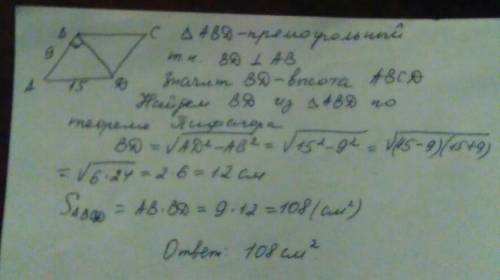 B C △ABD-прямоугольный
9 т.к. BD ⊥ AB
A 15 D Значит BD-высота ABCD
Найдем BD из △ABD по
теореме Пифагора
BD = √AD²-AB² = √15²-9² = √(15-9)(15+9)
= √6·24 = 2·6 = 12 см
S_ABCD = AB·BD = 9·12 = 108 (см²)
Ответ: 108 см²